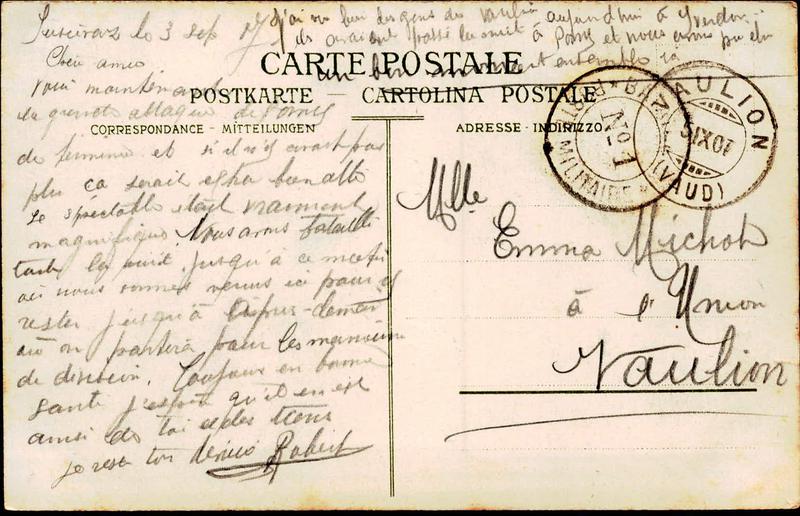 le 3 sep 07
j'ai vu bien des gens de Vaulion aujourd'hui à Yverdon
ils avaient passé la nuit à Pomy et nous avons pu
un bon moment ensemble ici
CARTE POSTALE
POSTKARTE — CARTOLINA POSTALE
CORRESPONDANCE - MITTEILUNGEN
ADRESSE - INDIRIZZO
Chère amie
Voici maintenant
la grande attaque de Pomy
de terminée et s'il n'y avait pas
plus ça serait bien allé
Le spectacle était vraiment
magnifique. Nous avons bataillé
toute la nuit jusqu'à ce matin
où nous sommes venus ici pour y
rester jusqu'à après-demain
où on partira pour les manœuvres
de division. Toujours en bonne
santé j'espère qu'il en est
ainsi de toi et des tiens
je reste ton Robert
Mlle
Emma Michot
à l'Union
Vaulion
No. 1
MILITAIRE
VAULION
IX 07
(VAUD)